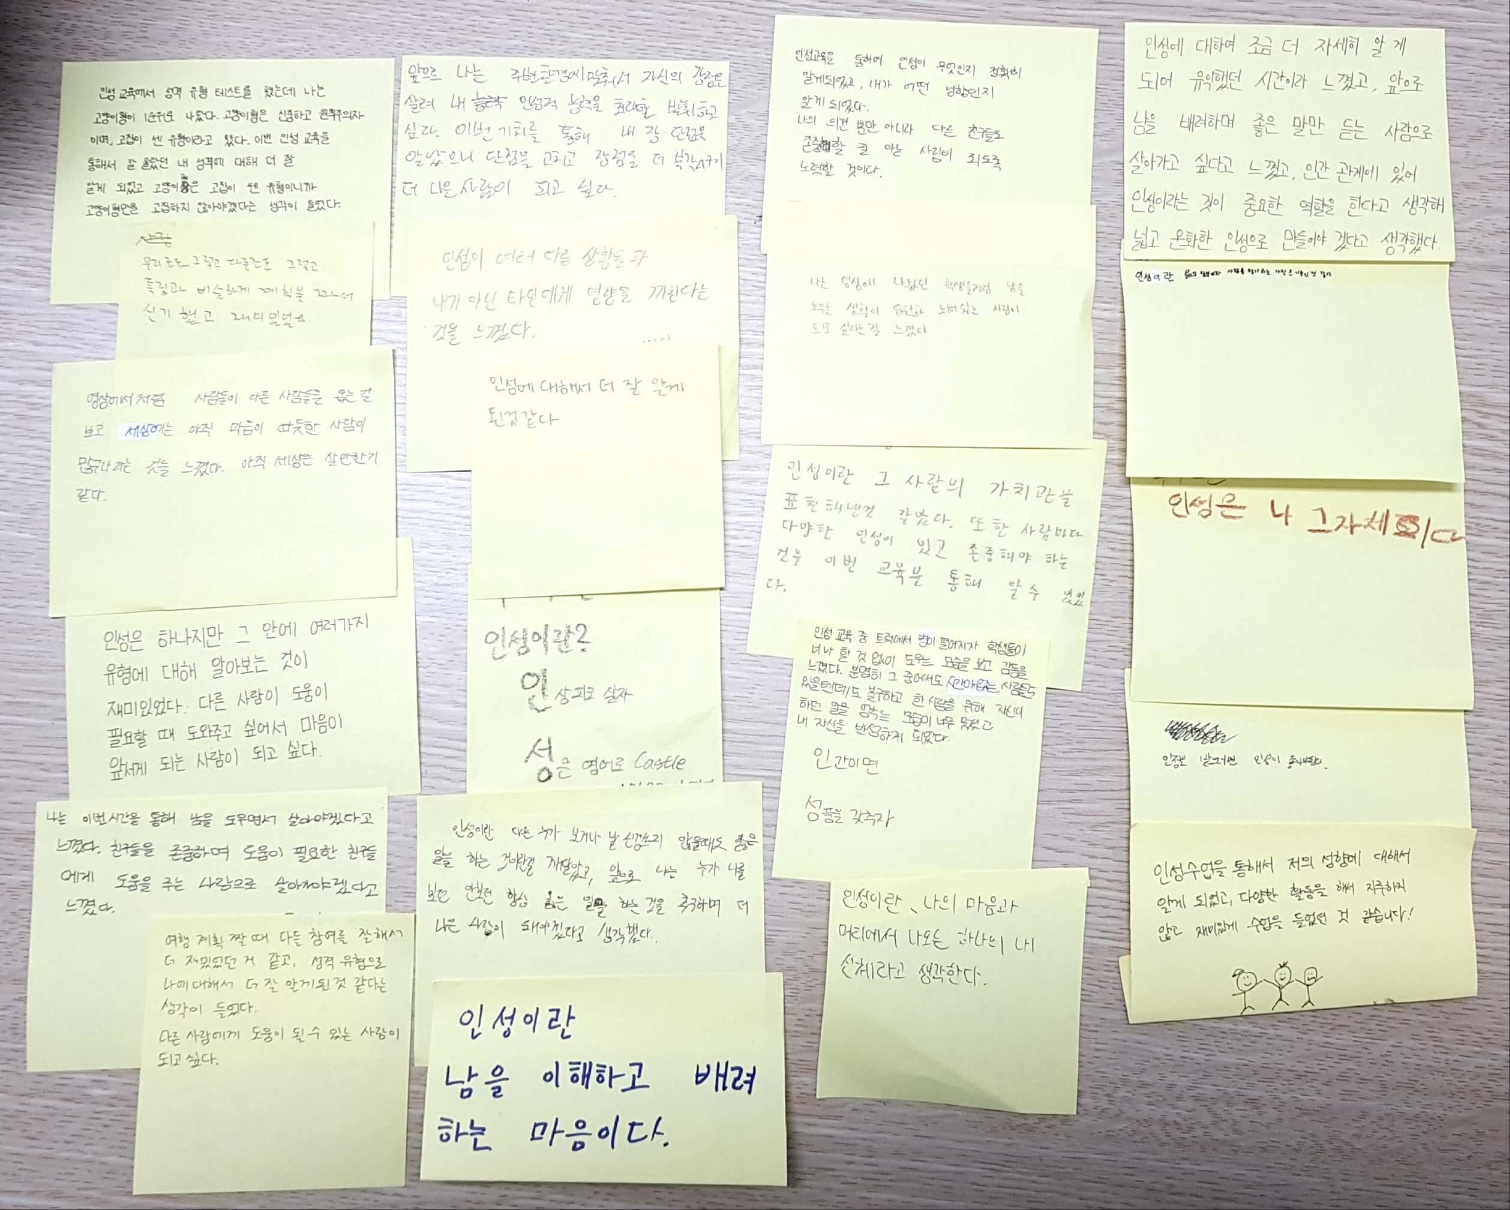 인성 교육에서 성격 유형 테스트를 했는데 나는
고양이형이 1순위로 나왔다. 고양이형은 신중하고 원칙주의자
이며, 고집이 센 유형이라고 했다. 이번 인성 교육을
통해서 잘 몰랐던 내 성격에 대해 더 잘
알게 되었고 고양이형은 고집이 센 유형이니까
고집하지 않아야겠다는 생각이 들었다.
우리조도 그렇고 다른조도 그렇고
특징과 비슷하게 계획을 짜서
신기했고 재미있었다
영상에서처럼 사람들이 다른 사람들을 돕는걸
보고 세상에는 아직 마음이 따뜻한 사람이
많구나라는 것을 느꼈다. 아직 세상은 살만한거
같다.
인성은 하나지만 그 안에 여러가지
유형에 대해 알아보는 것이
재미있었다. 다른 사람이 도움이
필요할 때 도와주고 싶어서 마음이
앞서게 되는 사람이 되고 싶다.
나는 이번시간을 통해 남을 도우면서 살아야겠다고
느꼈다. 친구들을 존중하며 도움이 필요한 친구들
에게 도움을 주는 사람으로 살아가야겠다고
느꼈다.
여행 계획 짤 때 다들 참여를 잘해서
더 재밌었던 거 같고, 성격 유형으로
나에 대해서 더 잘 알게된 것 같다는
생각이 들었다.
다른 사람에게 도움이 될 수 있는 사람이
되고 싶다.
앞으로 나는 주변환경에 맞춰서 자신의 장점을
살려 내 인성적 능력을 최대한 발휘하고
싶다. 이번 기회를 통해 내 장·단점을
알았으니 단점을 고치고 장점을 더 부각시키
더 나은 사람이 되고 싶다.
인성이 여러 다른 상황들과
내가 아닌 타인에게 영향을 끼친다는
것을 느꼈다.
인성에 대해서 더 잘 알게
된것같다
인성이란?
인상피고 살자
성은 영어로 Castle
인성이란 다른 누가 보거나 날 신경쓰지 않을때도 옳은
일을 하는 것이란걸 깨달았고, 앞으로 나는 누가 나를
보던 안보던 항상 옳은 일을 하는 것을 추구하며 더
나은 사람이 돼야겠다고 생각했다.
인성이란
남을 이해하고 배려
하는 마음이다.
인성교육을 통하여 인성이 무엇인지 정확히
알게되었고, 내가 어떤 성향인지
알게 되었다.
나의 의견 뿐만 아니라 다른 친구들도
존중할 줄 아는 사람이 되도록
노력할 것이다.
나는 영상에 나왔던 학생들처럼 남을
돕는 사람이
되고 싶다는걸 느꼈다
인성이란 그 사람의 가치관을
표현해낸것 같았다. 또한 사람마다
다양한 인성이 있고 존중해야 하는
것을 이번 교육을 통해 알 수 있었
다.
인성 교육 중 트럭에서 병이 떨어지자 학생들이
너나 할 것 없이 도우는 모습을 보고 감동을
느꼈다. 분명히 그 중에서도 시간이없는 사람들도
있을텐데도 불구하고 한 사람을 위해 자신이
하던 일을 멈추는 모습이 너무 멋있었고
내 자신을 반성하게 되었다.
인간이면
성품을 갖추자
인성이란, 나의 마음과
머리에서 나오는 하나의 내
신체라고 생각한다.
인성에 대하여 조금 더 자세히 알 게
되어 유익했던 시간이라 느꼈고, 앞으로
남을 배려하며 좋은 말만 듣는 사람으로
살아가고 싶다고 느꼈고, 인간 관계에 있어
인성이라는 것이 중요한 역할을 한다고 생각해
넓고 온화한 인성으로 만들어야 겠다고 생각했다.
인성이란
인성은 나 그자체이다
인성이 좋아진다.
인성수업을 통해서 저의 성향에 대해서
알게 되었고, 다양한 활동을 해서 지루하지
않고 재미있게 수업을 들었던 것 같습니다!